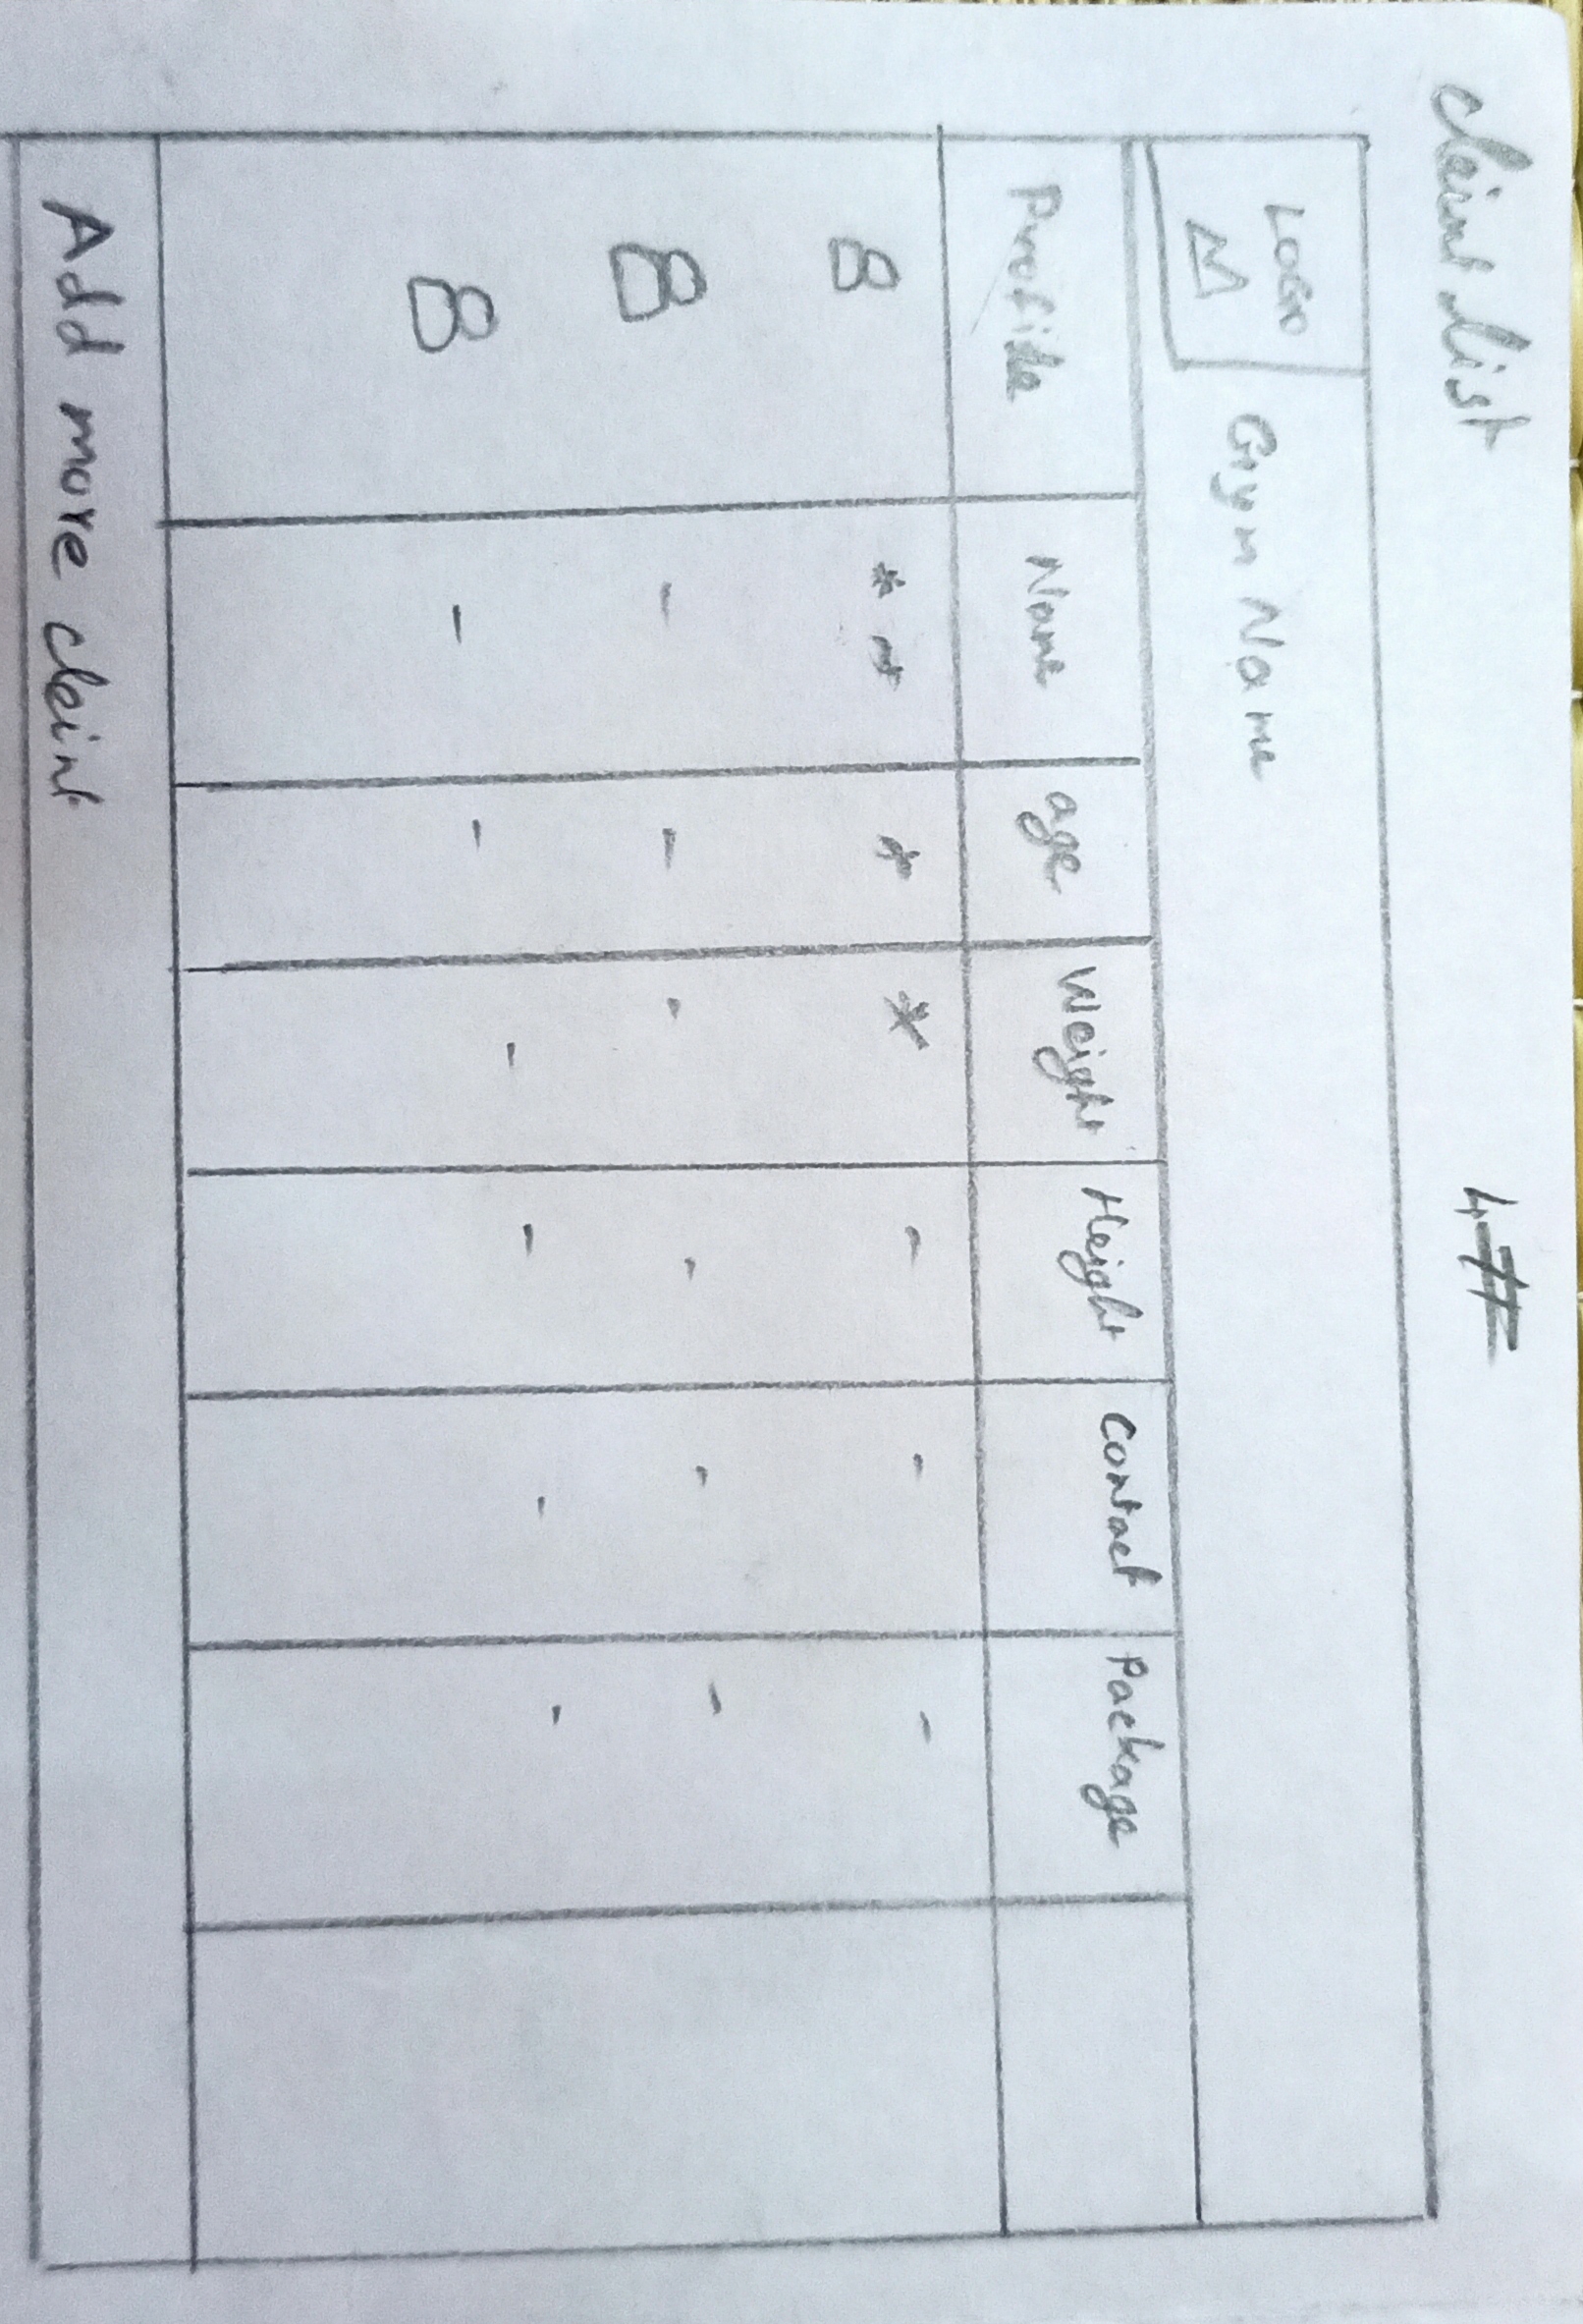 cleint list
LOGO
Gym Name
Profile Name age Weight Height Contact Package
Add more cleint